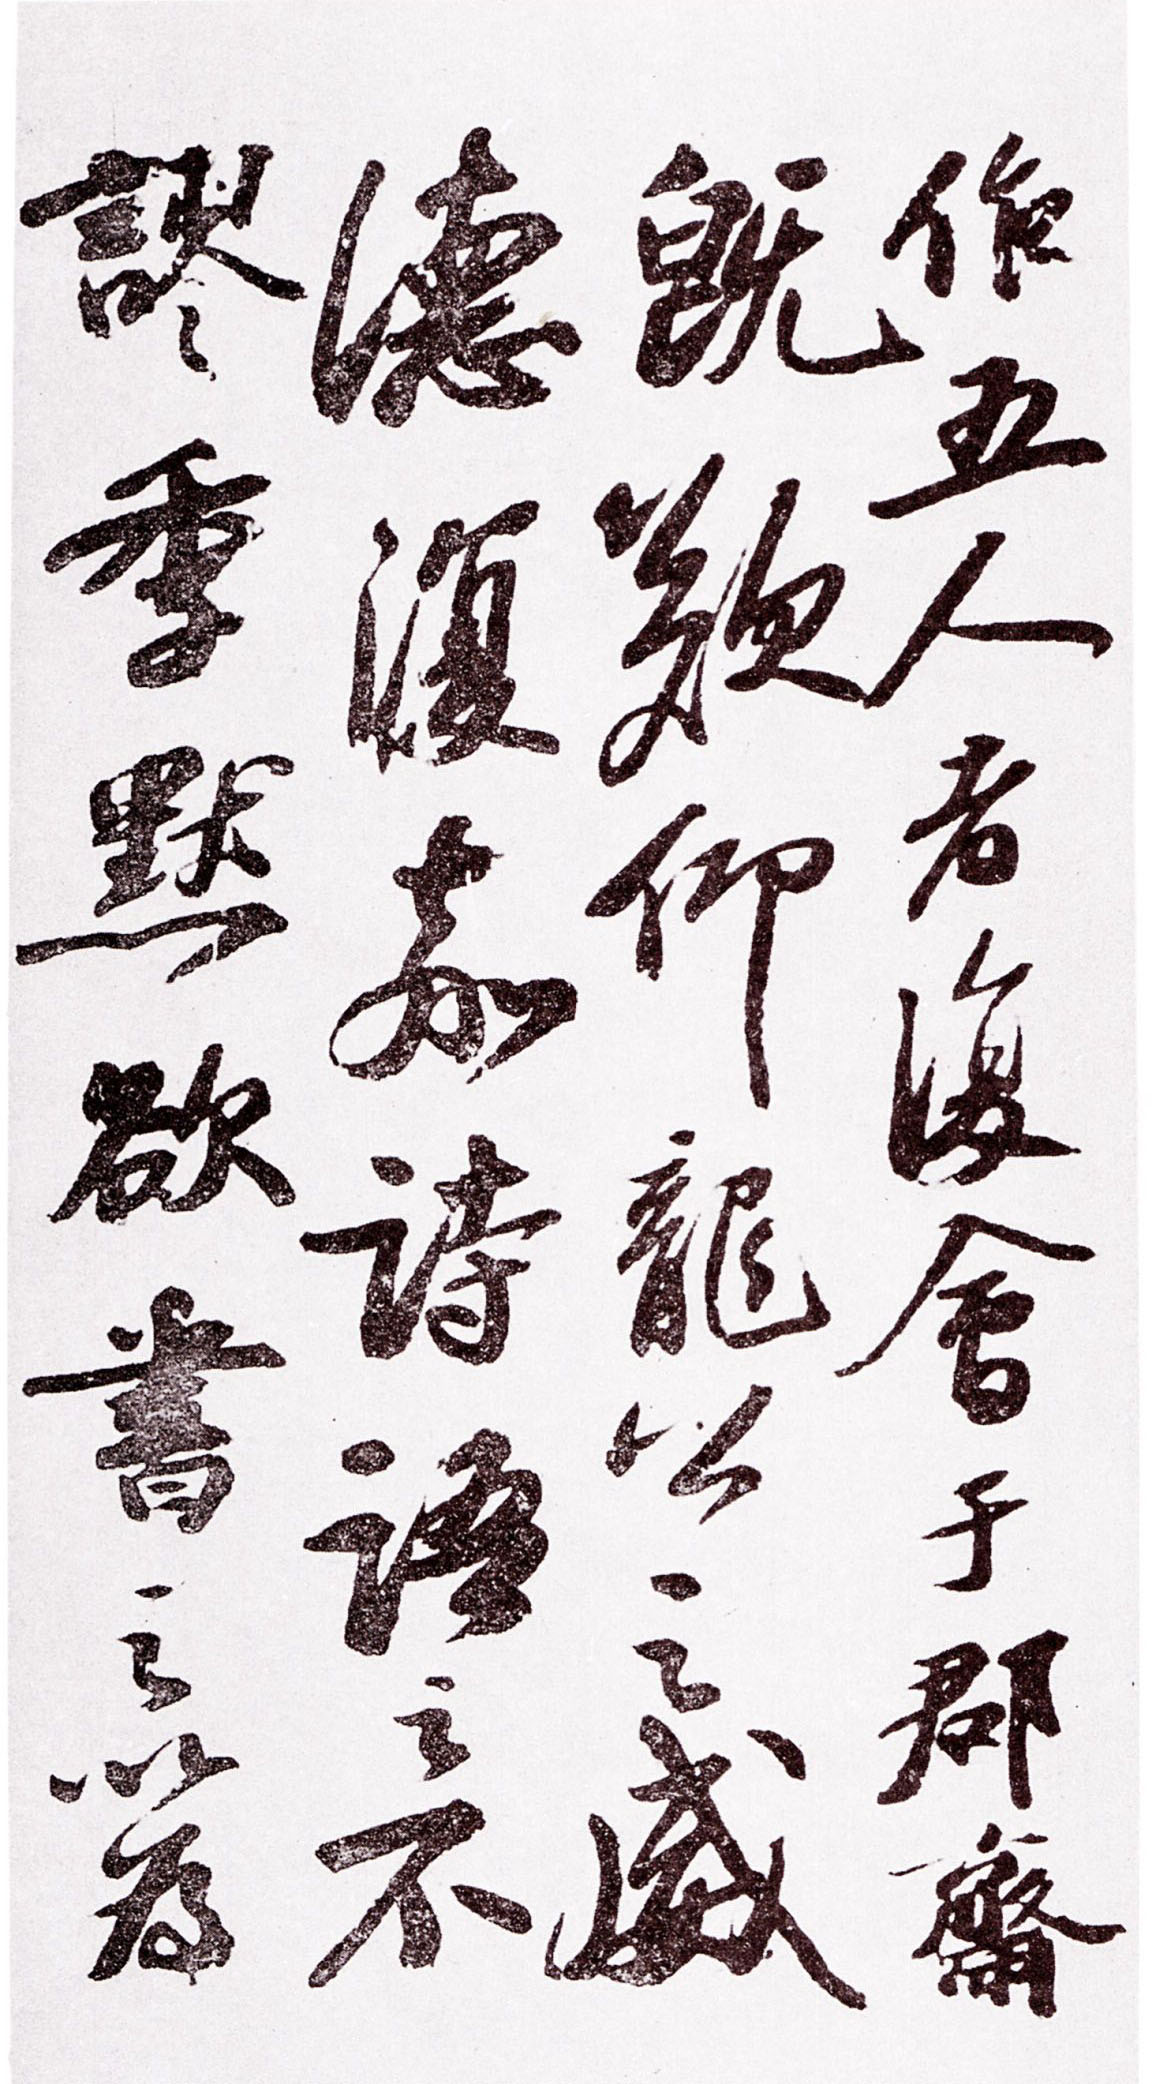 作五人者復會于郡齋
既歎仰龍公之威
德復嘉詩語之不
謬季默欲書之以為